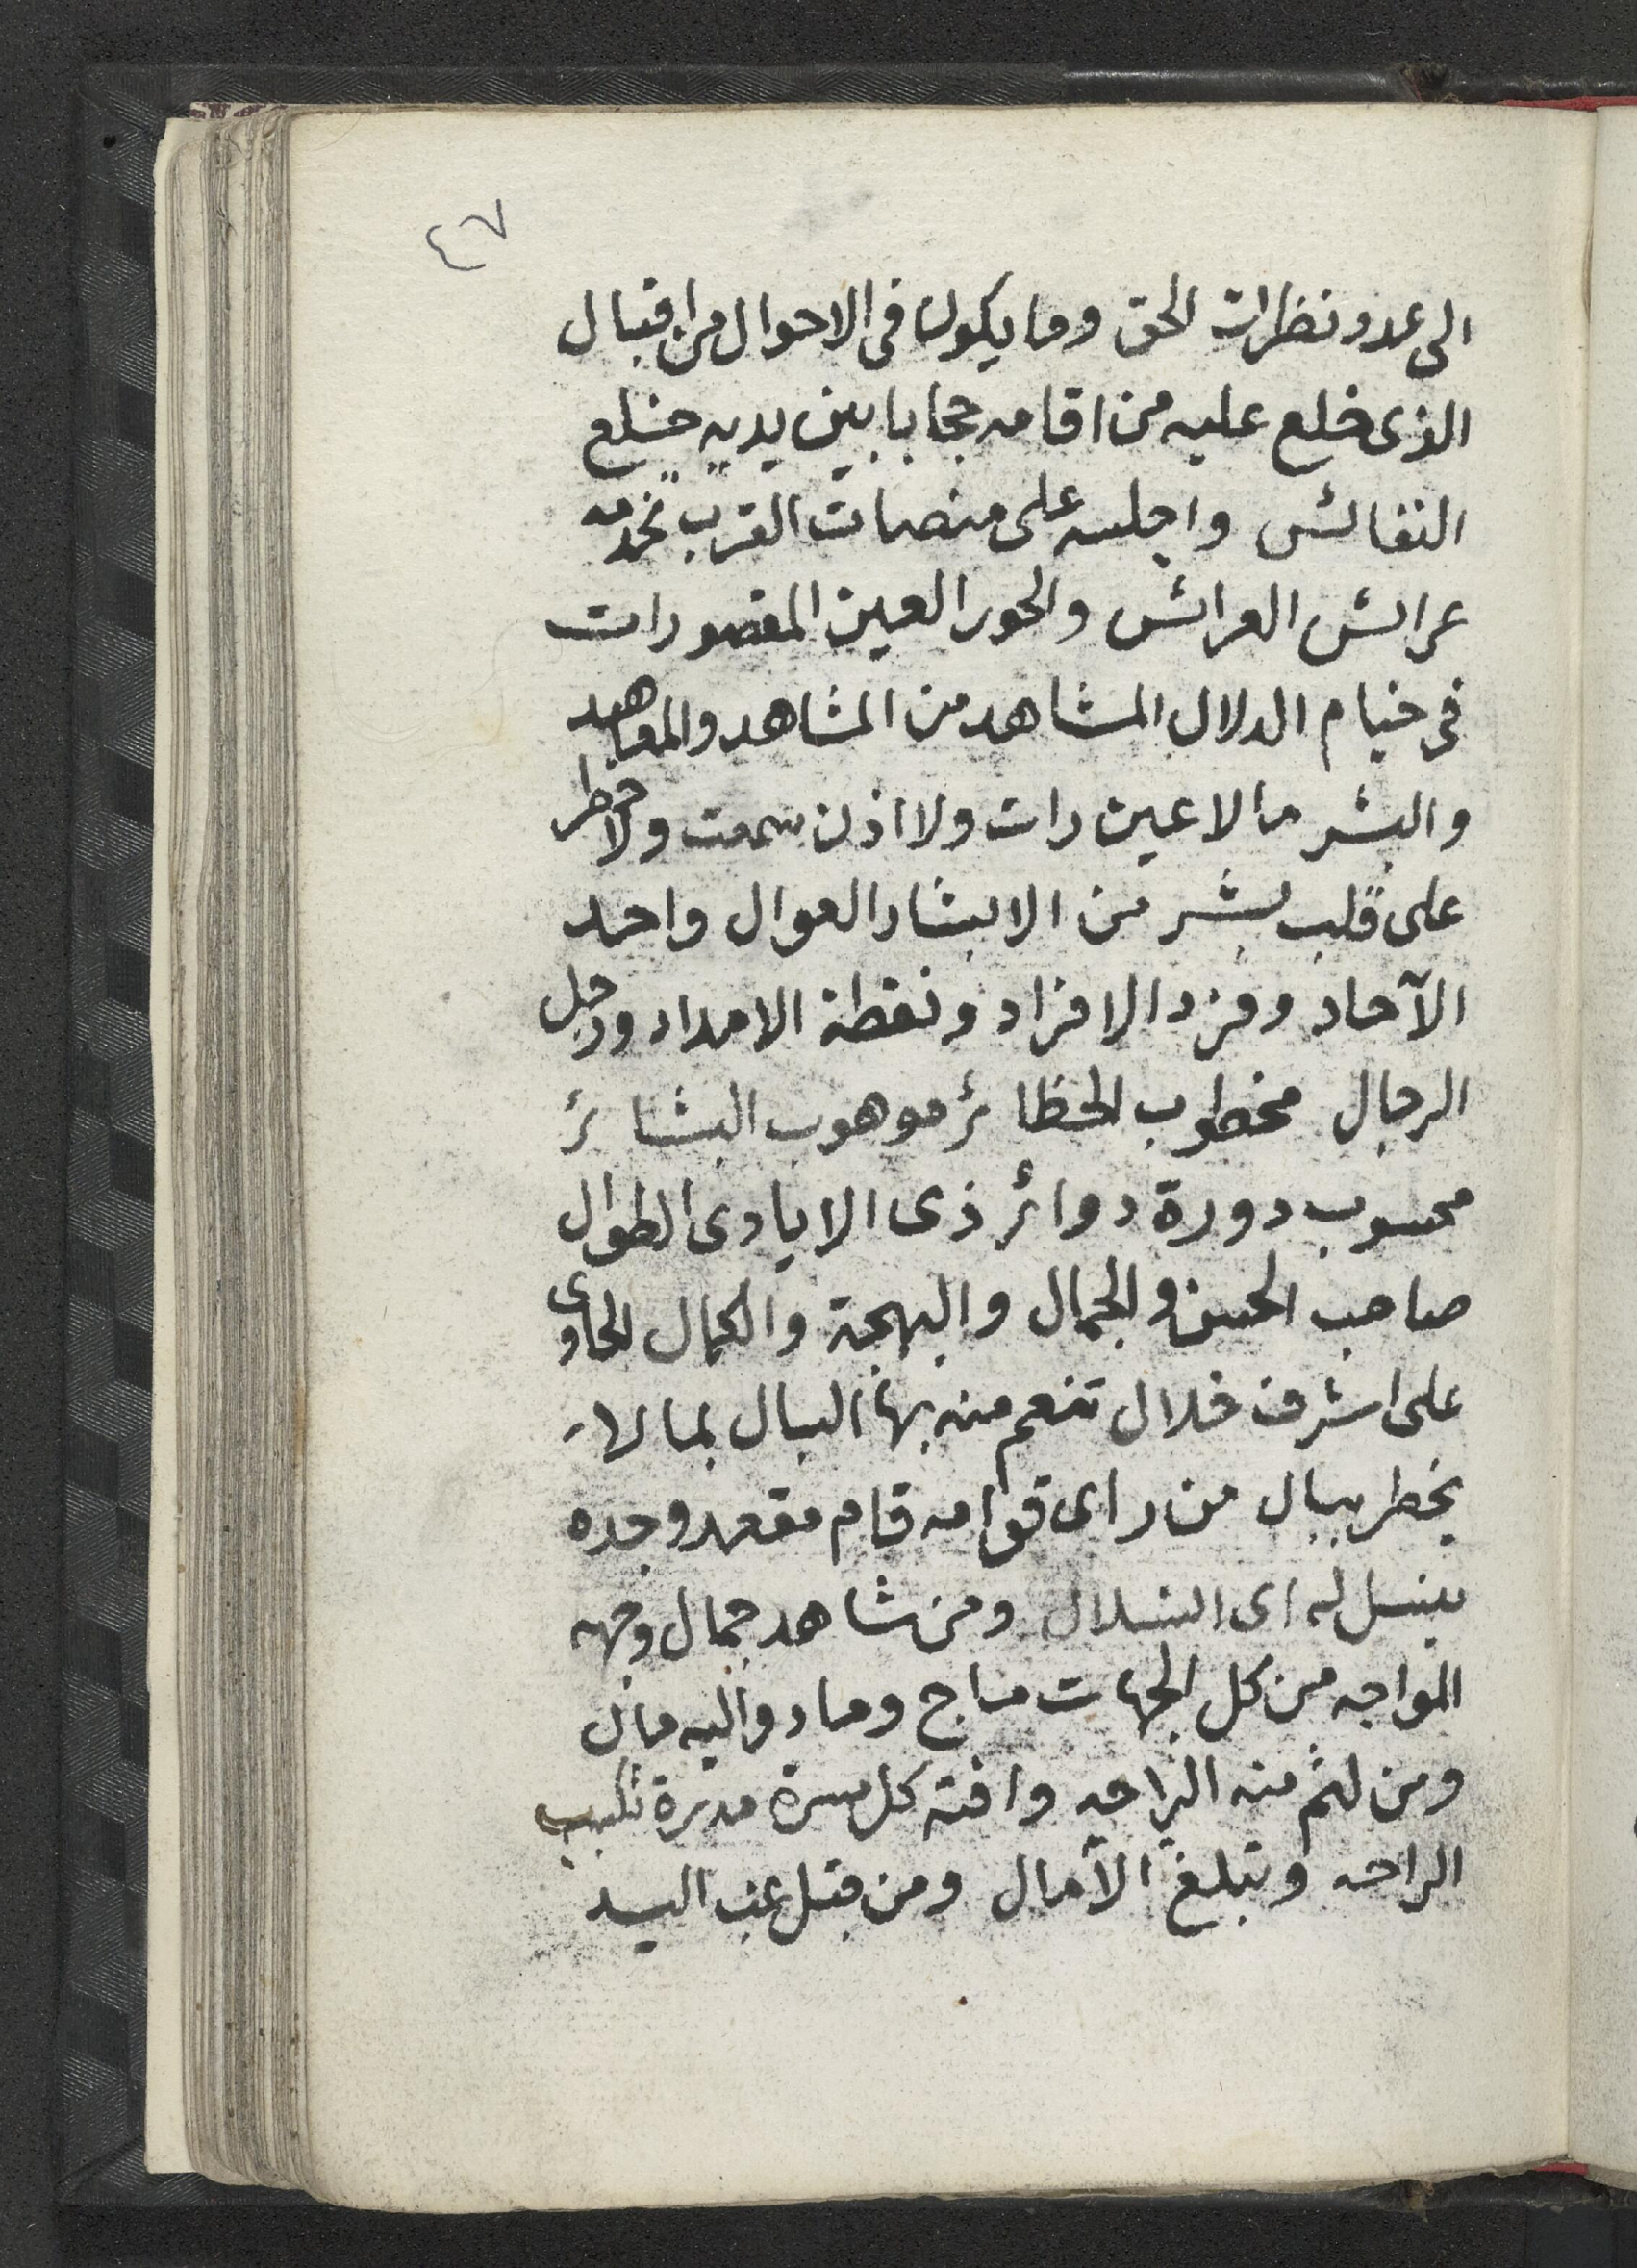 ٤٧
الى عدد نظرات الحق وما يكون فى الاحوال من اقبال
الذى خلع عليه من اقامه حجابا بين يديه خلع
النفائس واجلسه على منصات القرب تخدمه
عرائش العرائش والحور العين المقصورات
فى خيام الدلال المشاهد من المشاهد والمعاهد
والبشر ما لا عين رات ولا اذن سمعت ولا خطر
على قلب بشر من الابشار العوال واحد
الآحاد وفرد الافراد ونقطة الامداد ورجل
الرجال مخطوب الحظائر موهوب البشائر
محسوب دورة دوائر ذى الايادى الطوال
صاحب الحسن والجمال والبهجة والكمال الحاوى
على اشرف خلال تنعم منه بها البال بما لا
يخطر ببال من راى قوامه قام مقعد وجده
ينسل له اى انسلال ومن شاهد جمال وجهه
المواجه من كل الجهات ماج وماد واليه مال
ومن لثم منه الراحه وافته كل مسرة مديرة
الراحه وتبلغ الآمال ومن قبل اليد